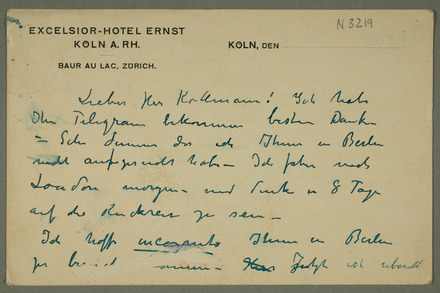 N 3219
EXCELSIOR-HOTEL ERNST
KÖLN A. RH.
KÖLN, DEN
BAUR AU LAC, ZÜRICH.
Lieber Herr Kollmann! Ich habe
Ihr Telegram bekommen besten Danken
= Sehr dumm das ich Ihnen in Berlin
nicht aufgesucht habe – Ich fahre nach
London morgen – und denke in 8 Tage
auf die Rückreise zu sein –
Ich hoffe incognito Ihnen in Berlin
zu – ist